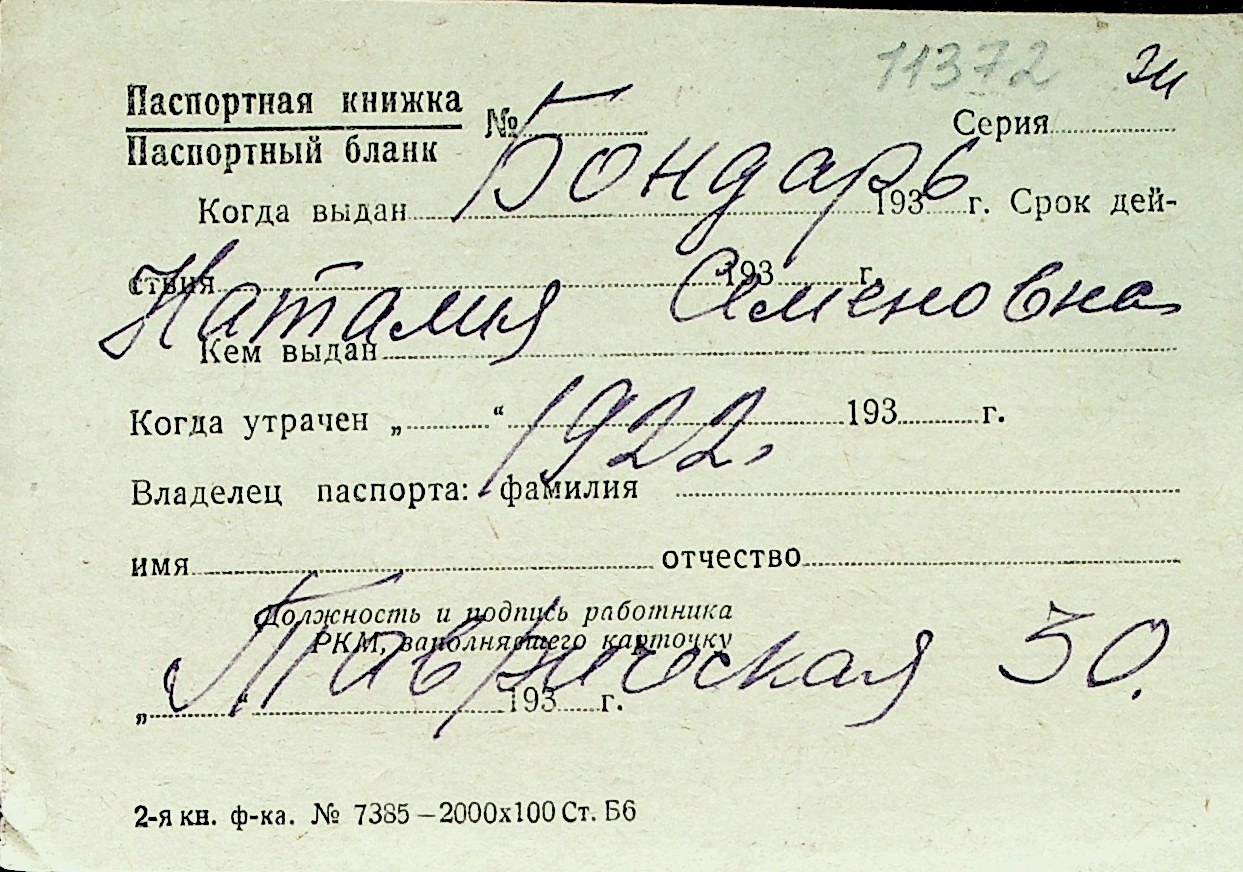 11372 
Паспортная книжка
Паспортный бланк
№ Серия
Бондарь
Когда выдан 193 г. Срок дей-
ствия 193 г.
Наталия Семеновна
Кем выдан
Когда утрачен „ “ 193 г.
1922.
Владелец паспорта: фамилия
имя отчество
Должность и подпись работника
РКМ, заполнявшего карточку
Таврическая 30.
„ “ 193 г.
2-я кн. ф-ка. № 7385—2000х100 Ст. Б6